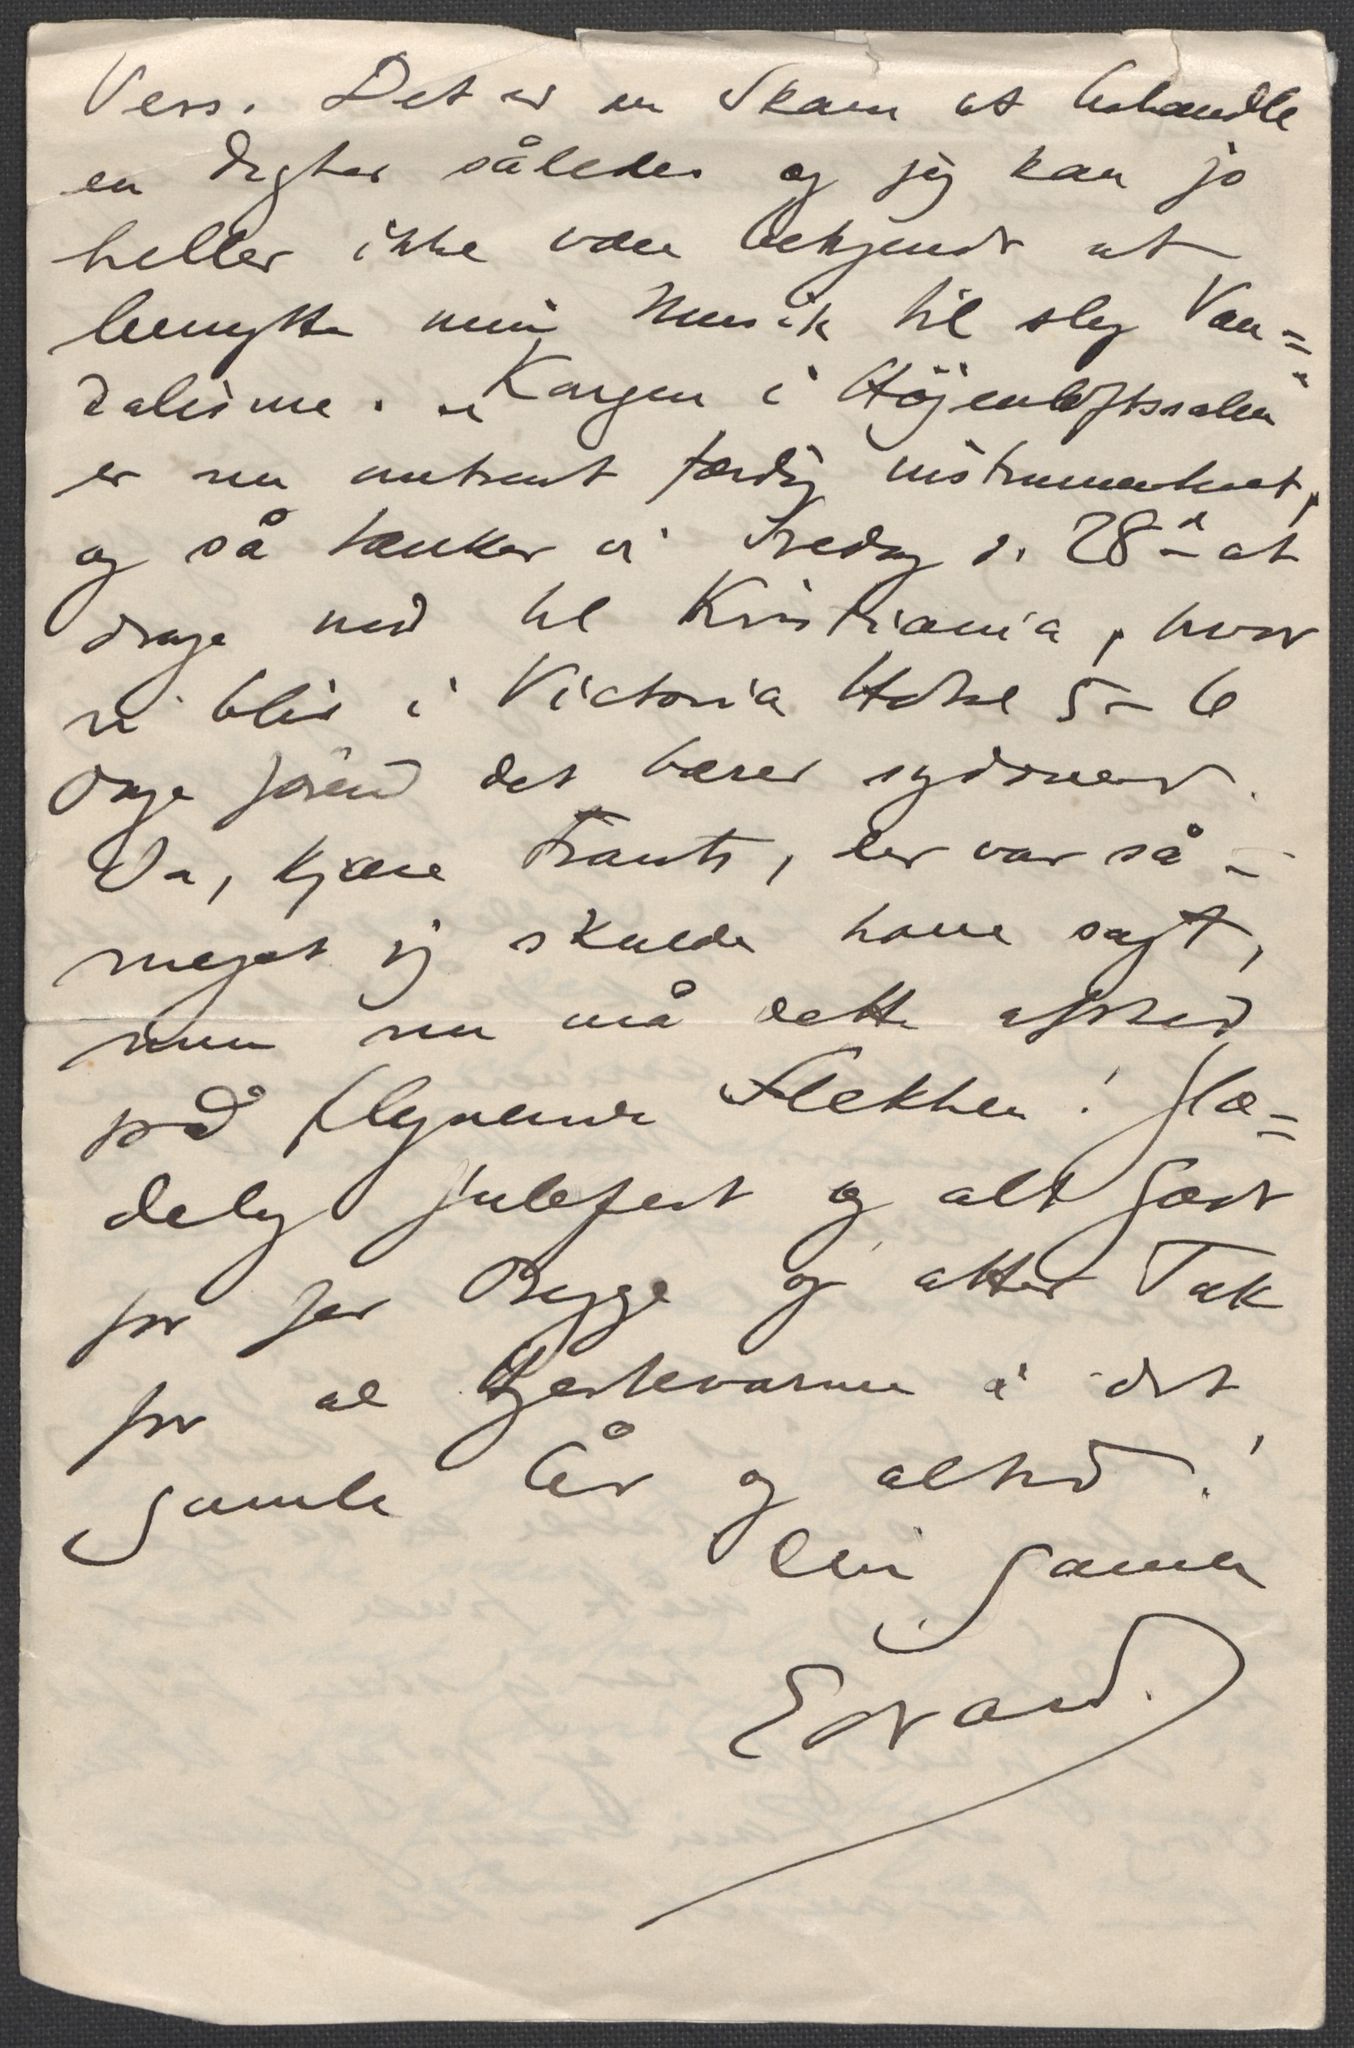 Vers. Det er en Skam at behandle
en Digter således og jeg kan jo
heller ikke være bekjendt at
benytte min Musik til slig Van=
dalisme. „Kongen i Højenloftssalen“
er nu omtrent færdig instrumenteret,
og så tænker vi Fredag d. 28de at
drage ned til Kristiania, hvor
vi blir i Victoria Hotel 5–6
Dage førend det bærer sydover.
Ja, kjære Frants, der var så
meget jeg skulde have sagt,
men nu må dette afsted
på flyvende Flekken! Glæ=
delig Julefest og alt Godt
for Jer Begge og atter Tak
for al Hjertevarme i det
gamle År og altid!
Din gamle
Edvard.